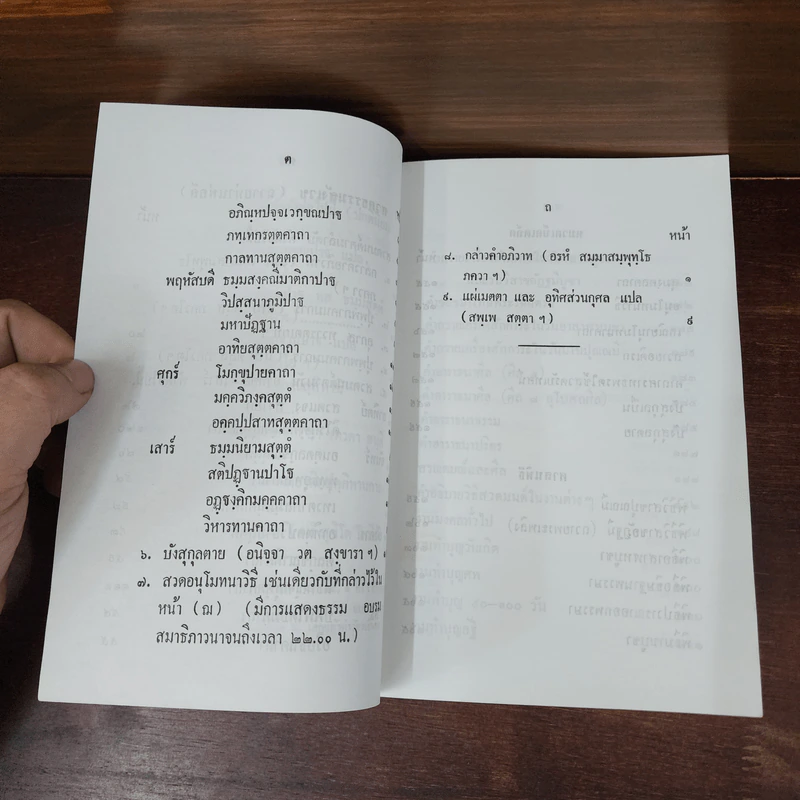 ต
อภิณฺหปจฺจเวกฺขณปาฐ
ภทฺเทกรตฺตคาถา
กาลทานสุตฺตคาถา
พฤหัสบดี ธมฺมสงฺคณีมาติกาปาฐ
วิปสฺสนาภูมิปาฐ
มหาปัฏฐาน
อาทิยสุตฺตคาถา
ศุกร์ โมกฺขุปายคาถา
มคฺควิภงฺคสุตฺตํ
อคฺคปฺปสาทสุตฺตคาถา
เสาร์ ธมฺมนิยามสุตฺตํ
สติปฏฺฐานปาโฐ
อฏฺฐงฺคิกมคฺคคาถา
วิหารทานคาถา
๖. บังสุกุลตาย (อนิจฺจา วต สงฺขารา ฯ)
๗. สวดอนุโมทนาวิธี เช่นเดียวกับที่กล่าวไว้ใน
หน้า (ณ) (มีการแสดงธรรม อบรม
สมาธิภาวนาจนถึงเวลา ๒๒.๐๐ น.)
ถ
หน้า
๘. กล่าวคำอภิวาท (อรหํ สมฺมาสมฺพุทฺโธ
ภควา ฯ) ๑
๙. แผ่เมตตา และ อุทิศส่วนกุศล แปล
(สพฺเพ สตฺตา ฯ) ๙